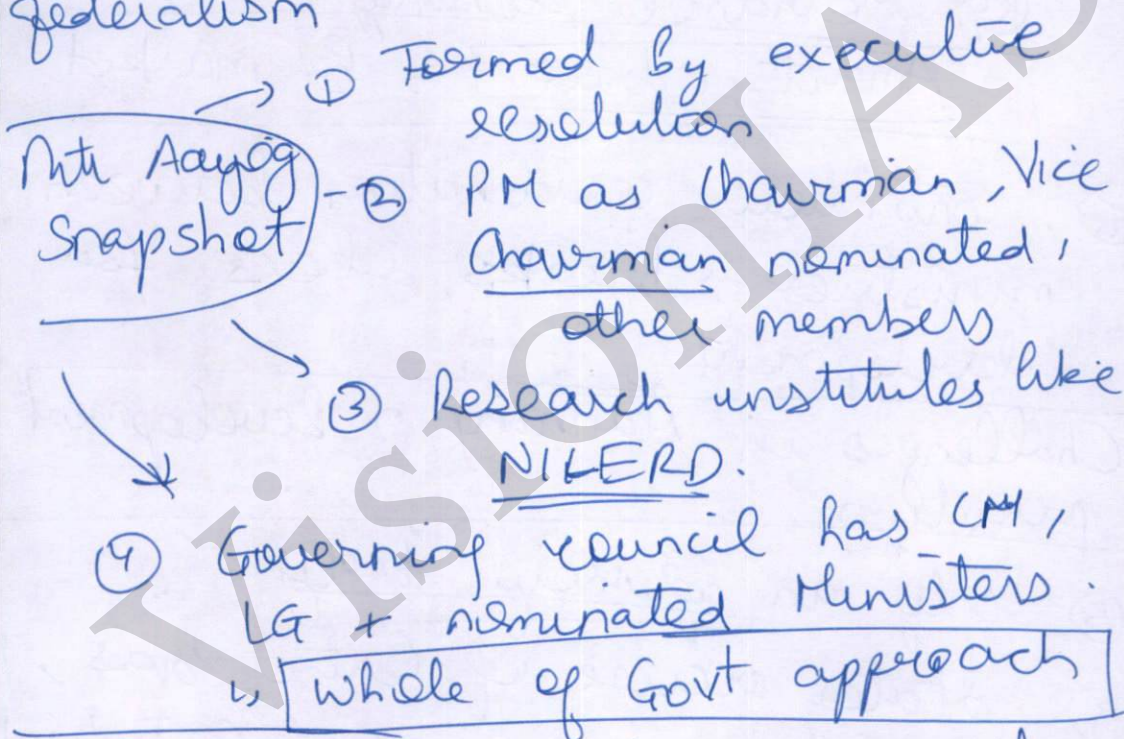 federalism
① Formed by executive
resolution
Niti Aayog
Snapshot
② PM as Chairman, Vice
Chairman nominated,
other members
③ Research institutes like
NILERD.
④ Governing council has CM,
LG + nominated Ministers.
whole of Govt approach
VisionIAS